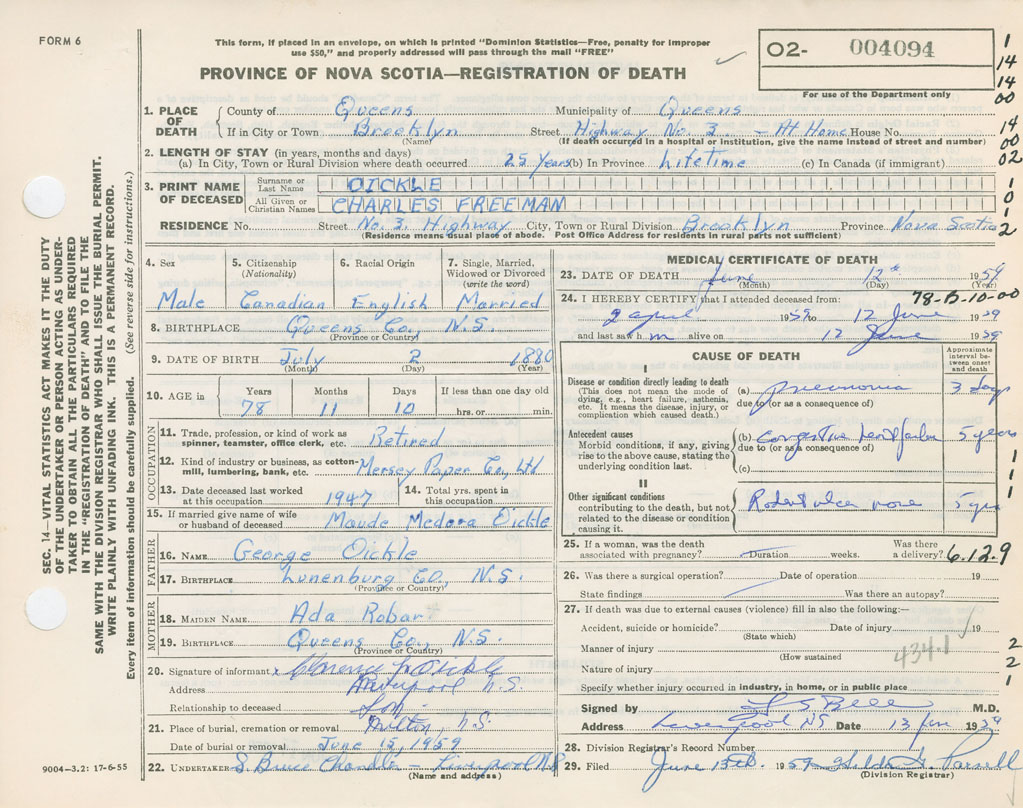 FORM 6
This form, if placed in an envelope, on which is printed "Dominion Statistics—Free, penalty for improper
use $50," and properly addressed will pass through the mail "FREE"
PROVINCE OF NOVA SCOTIA—REGISTRATION OF DEATH
O2- 004094
For use of the Department only
1
14
14
00
14
00
02
1
0
1
2
SEC. 14—VITAL STATISTICS ACT MAKES IT THE DUTY
OF THE UNDERTAKER OR PERSON ACTING AS UNDER-
TAKER TO OBTAIN ALL THE PARTICULARS REQUIRED
IN THE "REGISTRATION OF DEATH" AND TO FILE THE
SAME WITH THE DIVISION REGISTRAR WHO SHALL ISSUE THE BURIAL PERMIT.
WRITE PLAINLY WITH UNFADING INK. THIS IS A PERMANENT RECORD.
Every item of information should be carefully supplied. (See reverse side for instructions.)
1. PLACE OF DEATH County of Queens Municipality of Queens
If in City or Town Brooklyn Street Highway No. 3 - At Home House No.
(Name) (If death occurred in a hospital or institution, give the name instead of street and number)
2. LENGTH OF STAY (in years, months and days)
(a) In City, Town or Rural Division where death occurred 25 Years (b) In Province Lifetime (c) In Canada (if immigrant)
3. PRINT NAME OF DECEASED Surname or Last Name OICKLE
All Given or Christian Names CHARLES FREEMAN
RESIDENCE No. Street No. 3. Highway City, Town or Rural Division Brooklyn Province Nova Scotia
(Residence means usual place of abode. Post Office Address for residents in rural parts not sufficient)
4. Sex 5. Citizenship (Nationality) 6. Racial Origin 7. Single, Married, Widowed or Divorced (write the word)
Male Canadian English Married
8. BIRTHPLACE Queens Co., N.S.
(Province or Country)
9. DATE OF BIRTH July 2 1880
(Month) (Day) (Year)
10. AGE in Years Months Days If less than one day old
78 11 10 hrs. or min.
OCCUPATION
11. Trade, profession, or kind of work as
spinner, teamster, office clerk, etc. Retired
12. Kind of industry or business, as cotton-
mill, lumbering, bank, etc. Mersey Paper Co., Ltd
13. Date deceased last worked at this occupation 1947 14. Total yrs. spent in this occupation
15. If married give name of wife
or husband of deceased Maude Medora Oickle
FATHER
16. NAME George Oickle
17. BIRTHPLACE Lunenburg Co., N.S.
(Province or Country)
MOTHER
18. MAIDEN NAME Ada Robar
19. BIRTHPLACE Queens Co., N.S.
(Province or Country)
20. Signature of informant Oickle
Address Liverpool N.S.
Relationship to deceased Son
21. Place of burial, cremation or removal Milton N.S.
Date of burial or removal June 15, 1959
22. UNDERTAKER S. Bruce Chandler - Liverpool N.S
(Name and address)
9004-3.2: 17-6-55
MEDICAL CERTIFICATE OF DEATH
23. DATE OF DEATH June 12th 1959
(Month) (Day) (Year)
24. I HEREBY CERTIFY that I attended deceased from: 78-B-10-00
2 april 1959 to 12 June 1959
and last saw h m alive on 12 June 1959
CAUSE OF DEATH
Approximate interval between onset and death
I
Disease or condition directly leading to death
(This does not mean the mode of
dying, e.g., heart failure, asthenia,
etc. It means the disease, injury, or
complication which caused death.)
(a) pneumonia 3 days
due to (or as a consequence of)
Antecedent causes
Morbid conditions, if any, giving
rise to the above cause, stating the
underlying condition last.
(b) Congestive heart failure 5 years
due to (or as a consequence of)
(c)
II
Other significant conditions
contributing to the death, but not
related to the disease or condition
causing it.
Rodent ulcer nose 5 yrs
1
1
1
25. If a woman, was the death Was there
associated with pregnancy? Duration weeks. a delivery? 6.12.9
26. Was there a surgical operation? Date of operation 19
State findings Was there an autopsy?
27. If death was due to external causes (violence) fill in also the following:—
Accident, suicide or homicide? Date of injury 19
(State which)
434.1
Manner of injury 2
(How sustained
Nature of injury 2
Specify whether injury occurred in industry, in home, or in public place 1
Signed by Bell M.D.
Address Liverpool NS Date 13 Jun 1959
28. Division Registrar's Record Number
29. Filed June 15th 1959 Hilda G. Parnell
(Division Registrar)